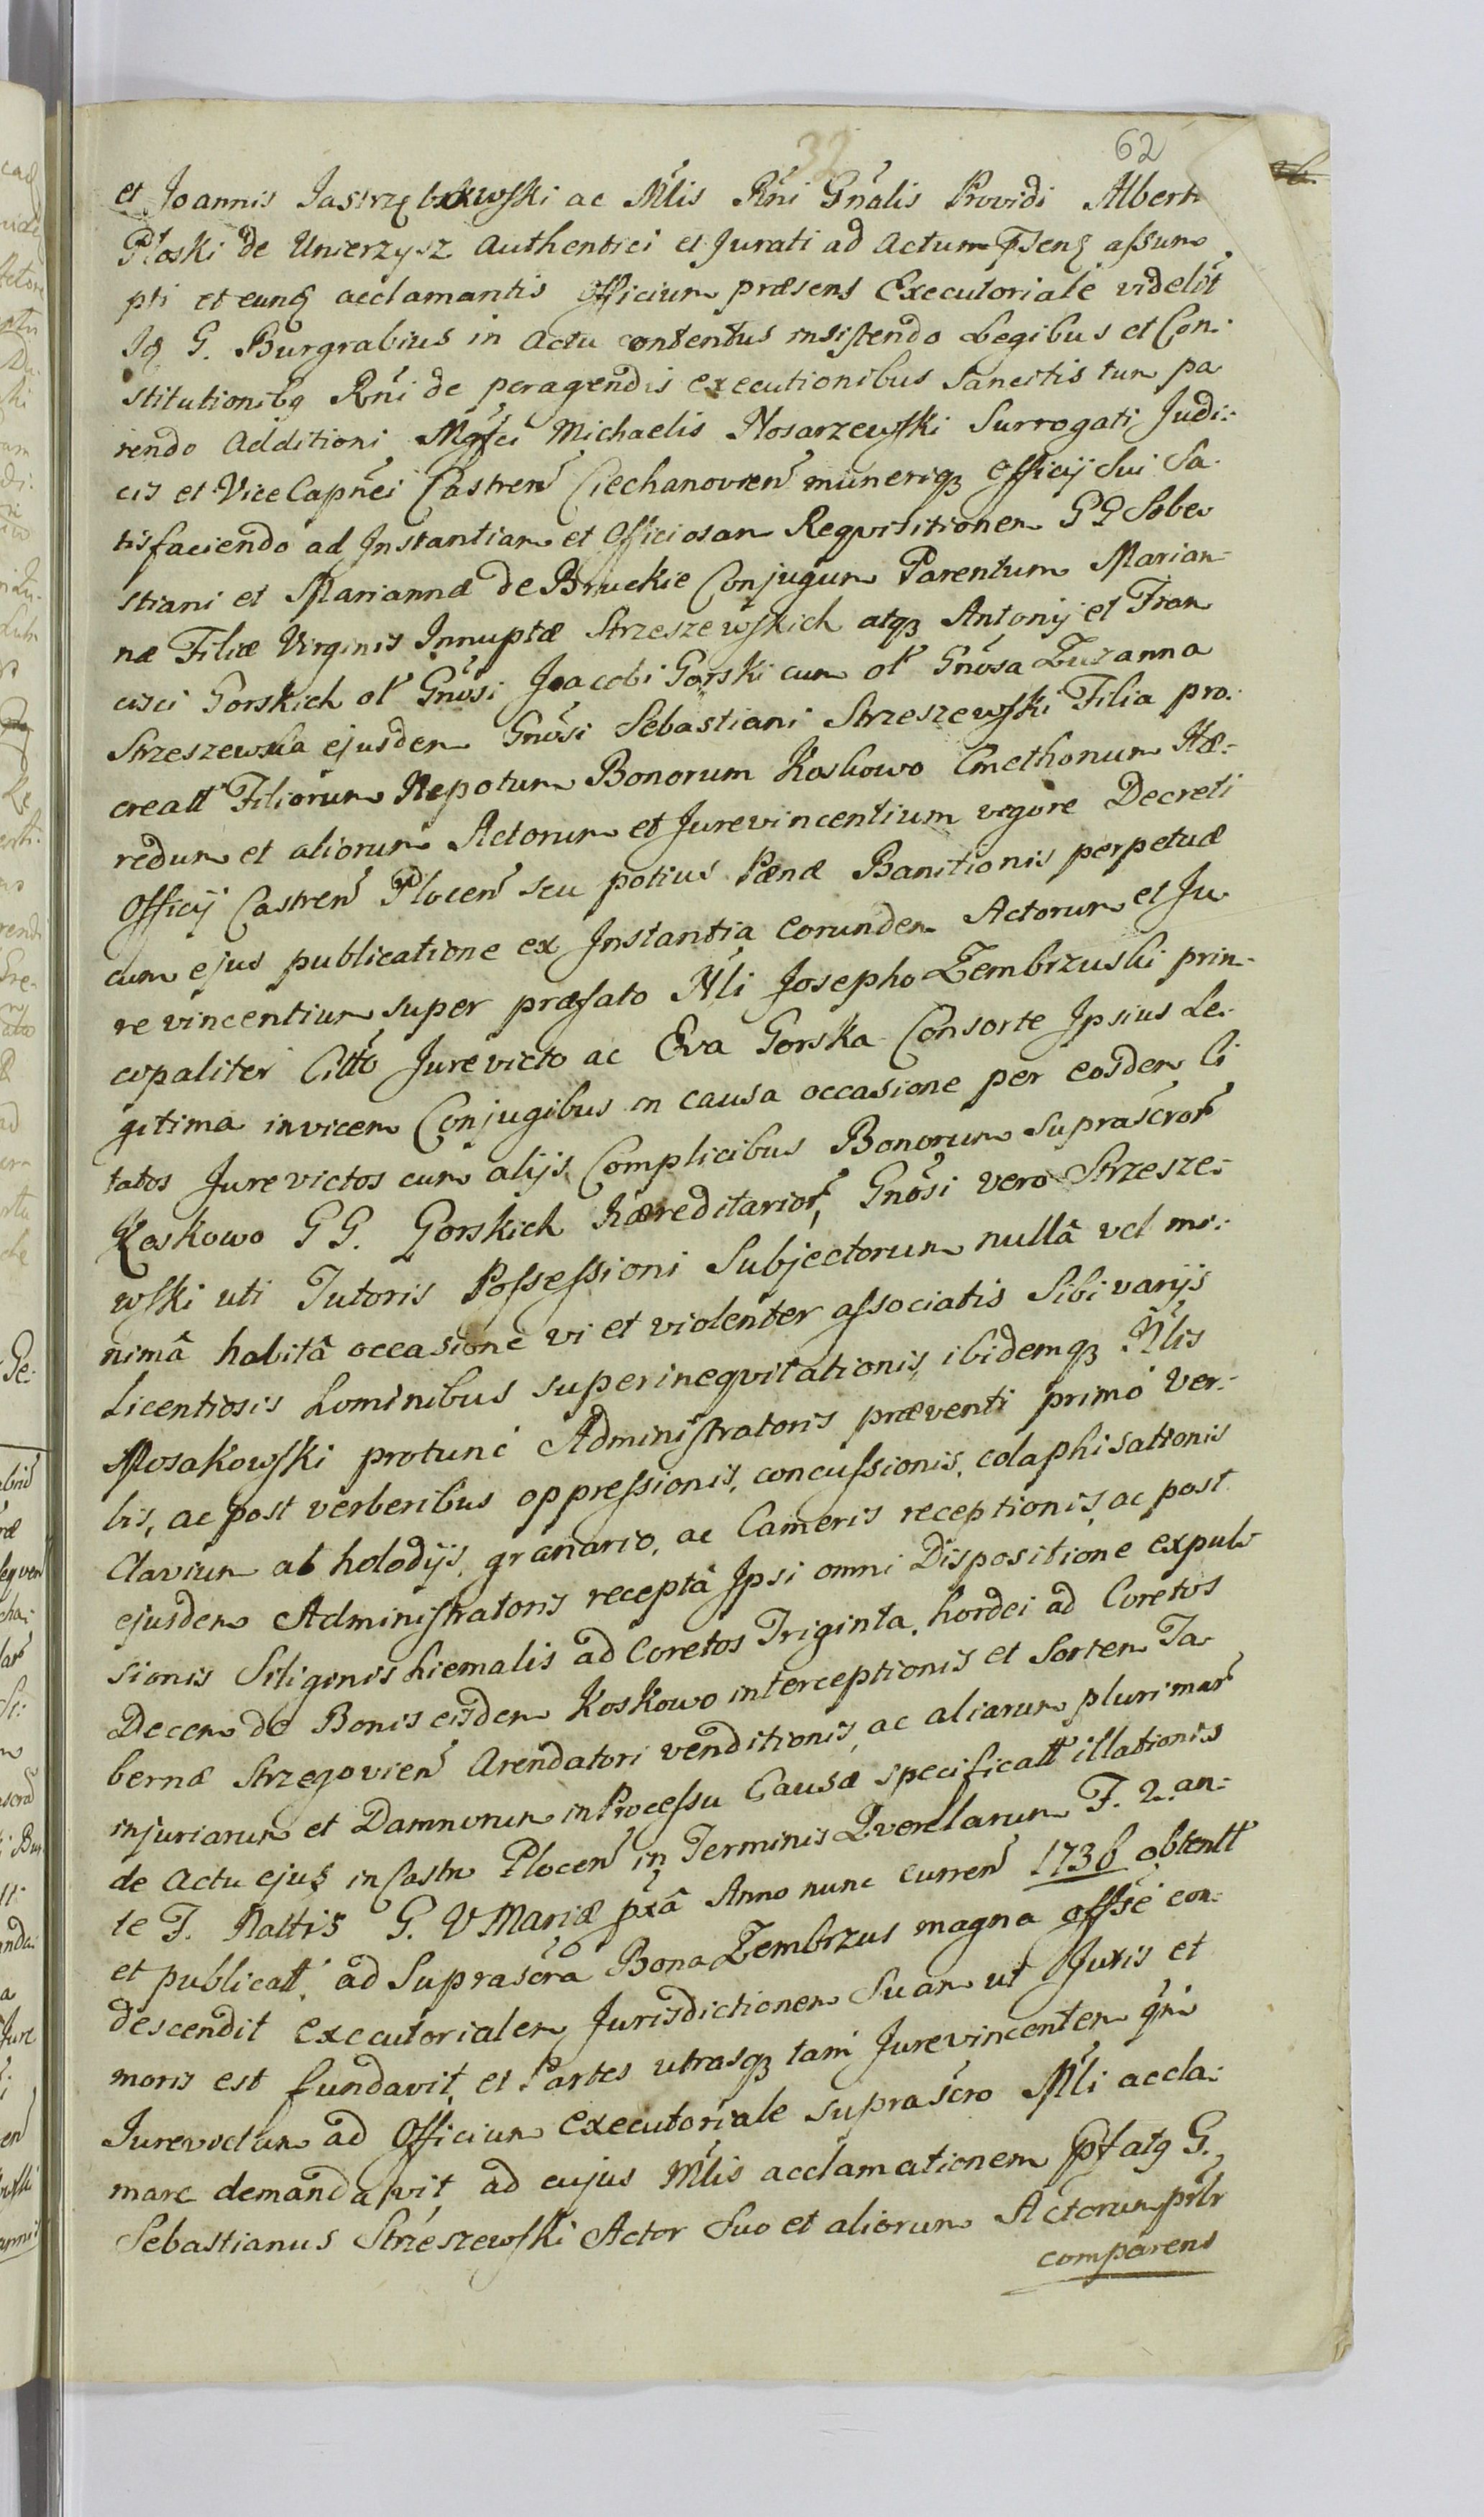 32 62
et Joannis Jastrzębkowski ac Mlis Rni Gnalis Providi Alberti
Ploski de Unierzysz Authentici et Jurati ad Actum psenq assum
pti et eunq acclamantis Officium præsens Executoriale videlit
Iq G. Burgrabius in actu contentus insistendo Legibus et Con:
stitutionibq Rni de peragendis executionibus Sancitis tum pa
rendo additioni Mgfci Michaelis Nosarzewski Surrogati Judi:
cis et Vice Capnei Castren Ciechanovien muneriqȝ Officij Sui Sa
tisfaciendo ad Instantiam et Officiosam Reqvisitionem GG Seba
stiani et Mariannæ de Bruckie Conjugum Parentum Marian
næ Filiæ Virginis Innuptæ Strzeszewskich atqȝ Antonij et Fran
cisci Gorskich ol Gnosi Jacobi Gorski cum ol Gnosa Zuzanna
Strzeszewska ejusdem Gnosi Sebastiani Strzeszewski Filia pro:
creatt Filiorum Nepotum Bonorum Koskowo Cmethonum Hæ:
redum et aliorum Actorum et Jurevincentium vigore Decreti
Officij Castren Plocen seu potius Pænæ Banitionis perpetuæ
cum ejus publicatione ex Instantia eorundem Actorum et Ju
re vincentium super præfato Nli Josepho Zembrzuski prin:
cipaliter Citto Jurevicto ac Eva Gorska Consorte Ipsius Le:
gitima invicem Conjugibus in causa occasione per eosdem Ci
tatos Jurevictos cum alijs Complicibus Bonorum suprascror
Koskowo GG. Gorskich hæreditarior, Gnosi vero Strzesze:
wski uti Tutoris Possessioni Subjectorum nullâ vel mi:
nimâ habitâ occasione vi et violenter associatis Sibi varijs
Licentiosis hominibus superineqvitationis, ibidemqȝ Nlis
Mosakowski protunc Administratoris præventi primo ver:
bis, ac post verberibus oppressionis, concussionis, colaphisationis
Clavium ab holodijs, granario, ac Cameris receptionis, ac post
ejusdem Administratoris receptâ Ipsi omni Dispositione expul
sionis Siliginis hiemalis ad Coretos Triginta, hordei ad Coretos
Decem de Bonis eisdem Koskowo interceptionis et Sortem Ta
bernæ Strzegovien Arendatori venditionis, ac aliarum plurimar
injuriarum et Damnorum in Processu Causæ specificatt illationis
de actu ejus in Castro Plocen in Terminis Qverelarum F. 2. an:
te F. Nattis G. V Mariæ pxâ Anno nunc curren 1736 obtentt
et publicatt, ad Suprascra Bona Zembrzus magna offse con:
descendit Executorialem Jurisdictionem Suam ut Juris et
moris est fundavit, et Partes utrasqȝ tam Jurevincentem qm
Jurevictam ad Officium Executoriale suprascro Mli accla:
mare demandavit, ad cujus Mlis acclamationem pfatq G.
Sebastianus Strzeszewski Actor Suo et aliorum Actorum prlr
comparens